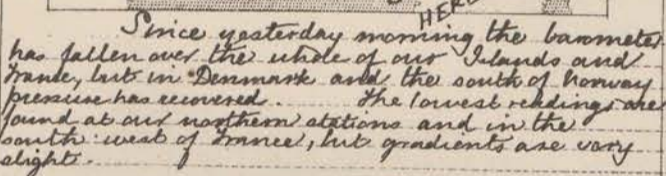 HER
Since yesterday morning the barometer
has fallen over the whole of our Islands and
France, but in Denmark and the south of Norway
pressure has recovered. The lowest readings are
found at our northern stations and in the
south west of France, but gradients are very
slight.